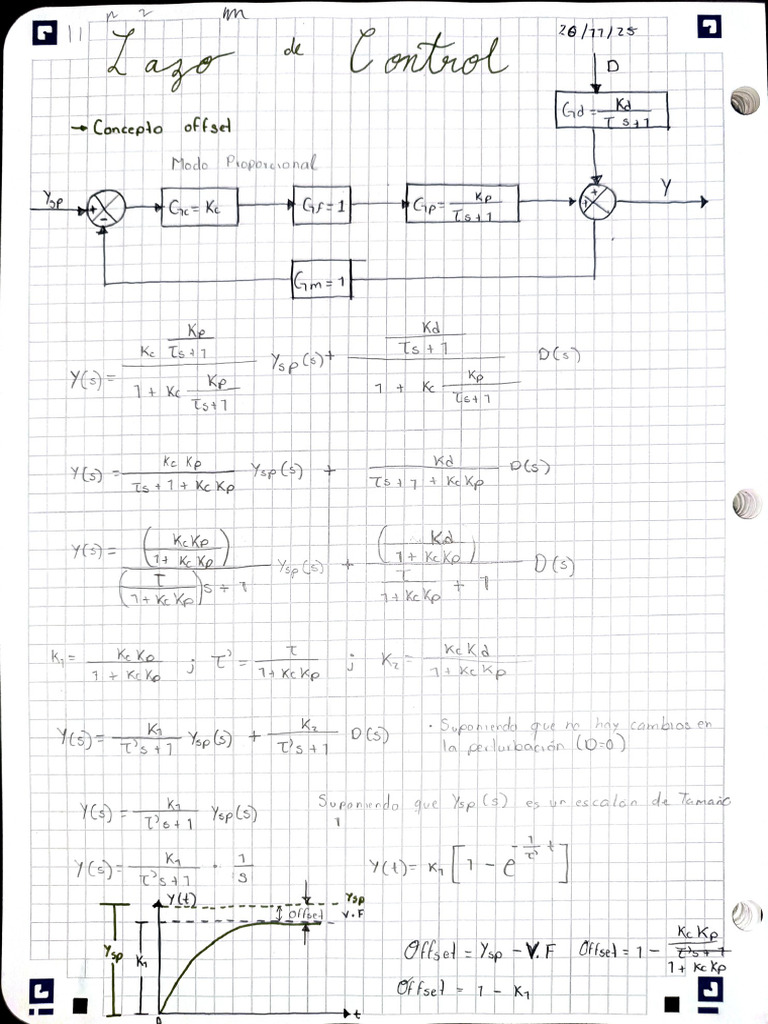 Lazo de Control
28/11/25
D
→ Concepto offset
Gd = Kd / τs+1
Modo Proporcional
Ysp
+
-
Gc = Kc
Gf = 1
Gp = Kp / τs+1
+
+
Y
Gm = 1
Y(s) = (Kc Kp/(τs+1)) / (1 + Kc Kp/(τs+1)) Ysp(s) + (Kd/(τs+1)) / (1 + Kc Kp/(τs+1)) D(s)
Y(s) = Kc Kp / (τs + 1 + Kc Kp) Ysp(s) + Kd / (τs + 1 + Kc Kp) D(s)
Y(s) = (Kc Kp / (1 + Kc Kp)) / ((τ / (1 + Kc Kp))s + 1) Ysp(s) + (Kd / (1 + Kc Kp)) / (τ / (1 + Kc Kp) + 1) D(s)
K1 = Kc Kp / (1 + Kc Kp) ; τ' = τ / (1 + Kc Kp) ; K2 = Kc Kd / (1 + Kc Kp)
Y(s) = K1 / (τ's + 1) Ysp(s) + K2 / (τ's + 1) D(s)
· Suponiendo que no hay cambios en
la perturbación (D=0)
Y(s) = K1 / (τ's + 1) Ysp(s)
Suponiendo que Ysp(s) es un escalón de Tamaño
1
Y(s) = K1 / (τ's + 1) · 1/s
Y(t) = K1 [1 - e^(-1/τ' t)]
Y(t)
Ysp
Offset
V.F
Ysp
K1
0
t
Offset = Ysp - V.F
Offset = 1 - Kc Kp / (1 + Kc Kp)
Offset = 1 - K1